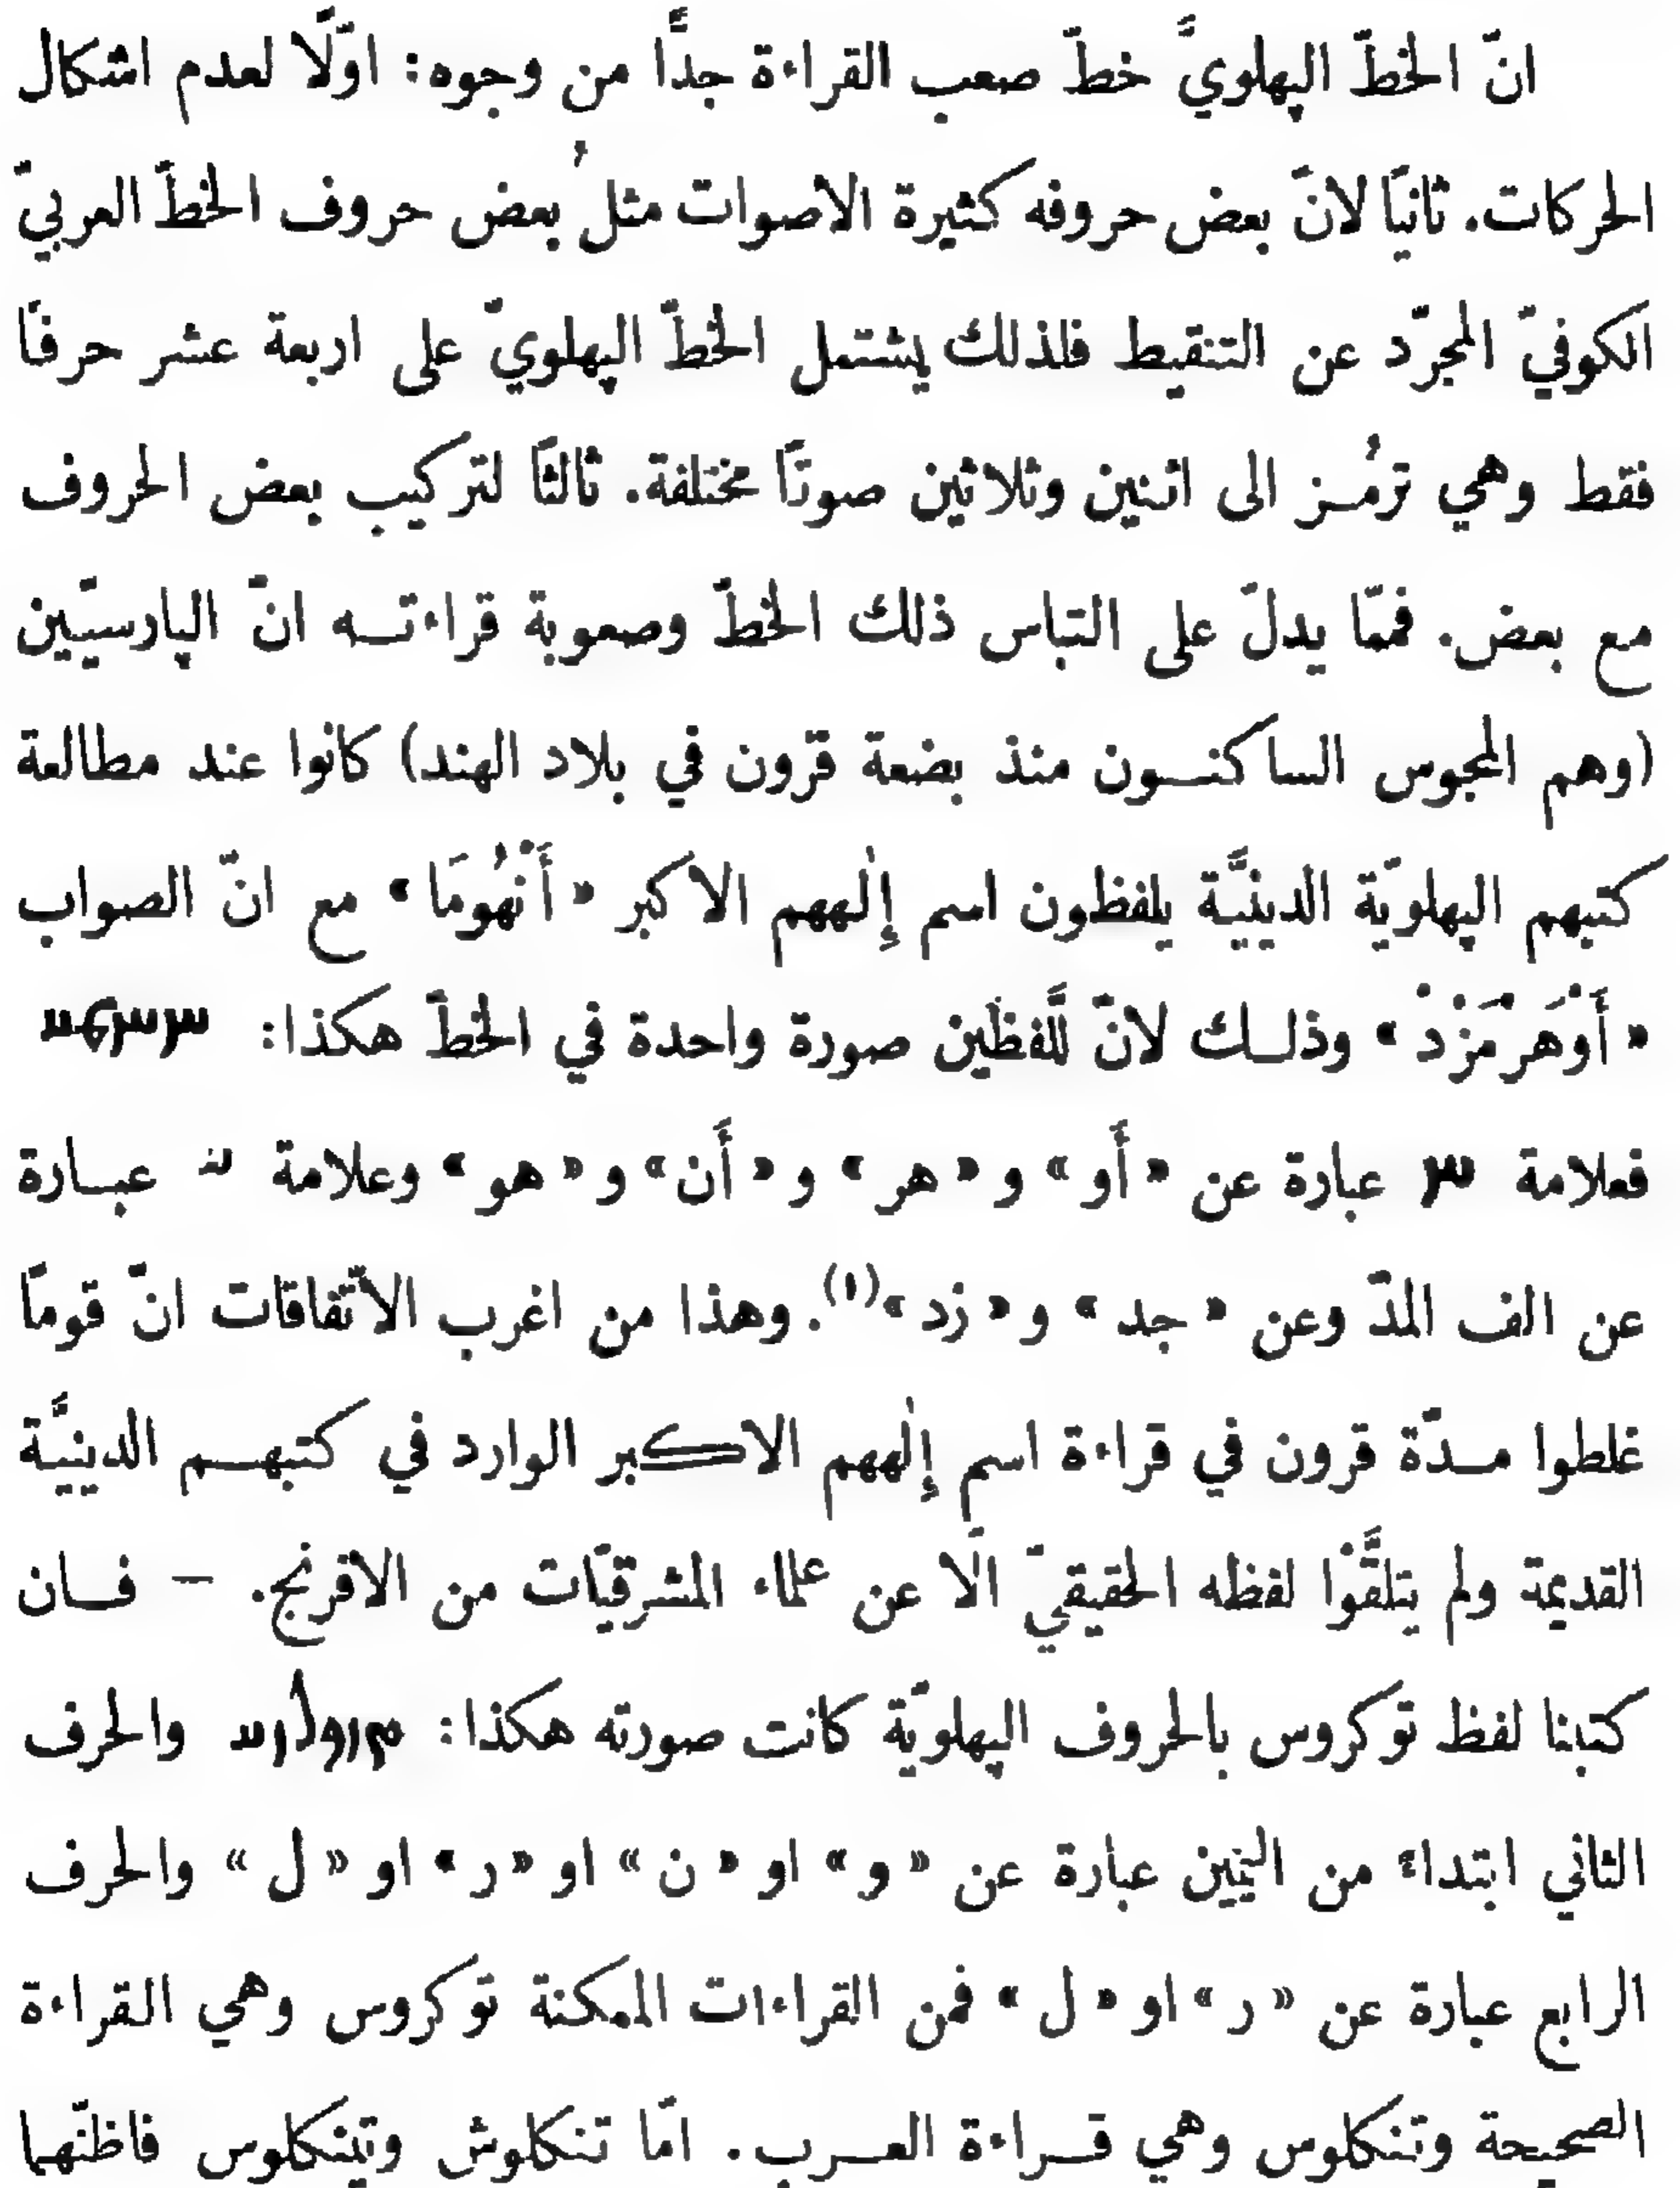 انّ الخطّ الپهلويّ خطّ صعب القراءة جدًّا من وجوه: اوّلًا لعدم اشكال
الحركات. ثانيًا لانّ بعض حروفه كثيرة الاصوات مثلُ بعض حروف الخطّ العربيّ
الكوفيّ المجرّد عن التنقيط فلذلك يشتمل الخطّ الپهلويّ على اربعة عشر حرفًا
فقط وهي ترمُـز الى اثنين وثلاثين صوتًا مختلفة. ثالثًا لتركيب بعض الحروف
مع بعض. فممّا يدلّ على التباس ذلك الخطّ وصعوبة قراءتـه انّ الپارسيّين
(وهم المجوس الساكنـون منذ بضعة قرون في بلاد الهند) كانوا عند مطالعة
كتبهم الپهلويّة الدينيَّة يلفظون اسم إِلٰههم الاكبر « أَنْهُومَا » مع انّ الصواب
« أَوْهَرْمَزْدْ » وذلـك لانّ للّفظين صورة واحدة في الخطّ هكذا:
فعلامة عبارة عن « أَو » و « هر » و « أَن » و « هو » وعلامة عبـارة
عن الف المدّ وعن « جد » و « زد »(١). وهذا من اغرب الاتّفاقات انّ قومًا
غلطوا مـدّة قرون في قراءة اسم إِلٰههم الاكبر الوارد في كتبهـم الدينيَّة
القديمة ولم يتلقَّوْا لفظه الحقيقيّ الّا عن علماء المشرقيّات من الافرنج. — فـان
كتبنا لفظ توكروس بالحروف الپهلويّة كانت صورته هكذا: والحرف
الثاني ابتداء من اليمين عبارة عن « و » او « ن » او « ر » او « ل » والحرف
الرابع عبارة عن « ر » او « ل » فمن القراءات الممكنة توكروس وهي القراءة
الصحيحة وتنكلوس وهي قـراءة العـرب. امّا تنكلوش وتينكلوس فاظنّهما